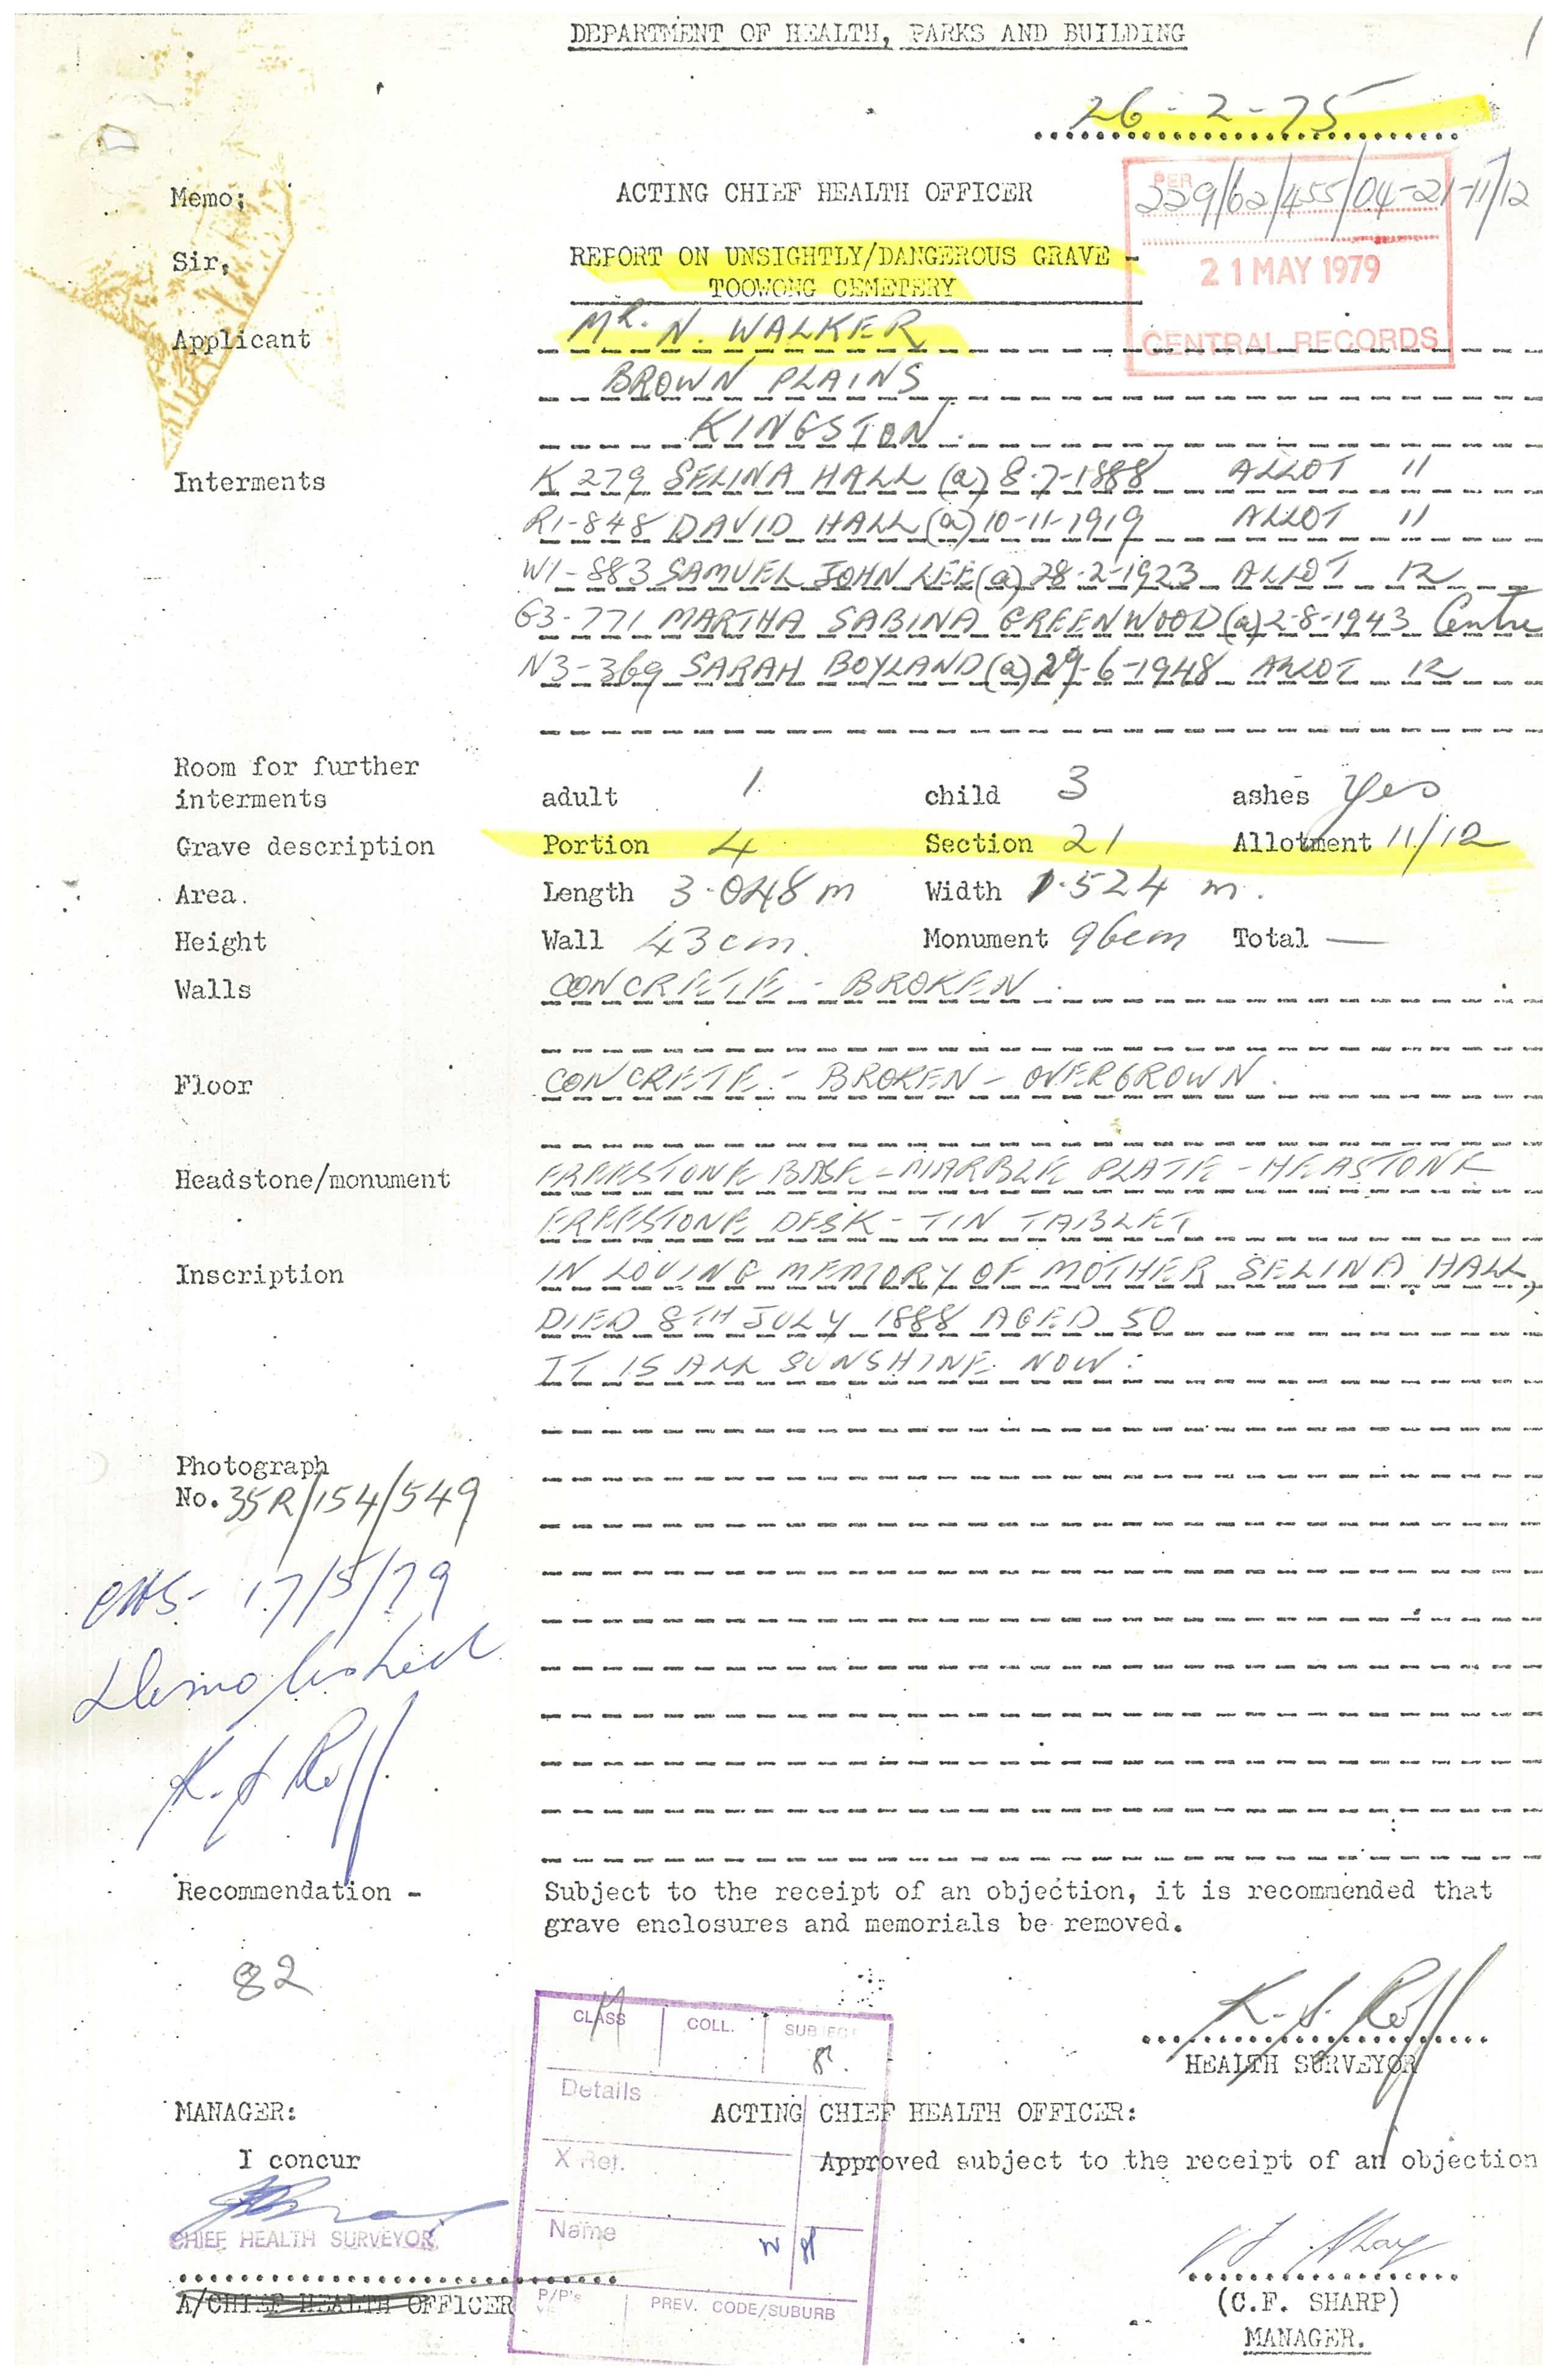 DEPARTMENT OF HEALTH, PARKS AND BUILDING
1
26-2-75
Memo;
ACTING CHIEF HEALTH OFFICER
PER
229/62/455/04-21-11/12
Sir,
REPORT ON UNSIGHTLY/DANGEROUS GRAVE -
TOOWONG CEMETERY
21 MAY 1979
CENTRAL RECORDS
Applicant
MR. N. WALKER
BROWN PLAINS
KINGSTON.
Interments
K 279 SELINA HALL (a) 8-7-1888 ALLOT 11
R1-848 DAVID HALL (a) 10-11-1919 ALLOT 11
W1-883 SAMUEL JOHN LEE (a) 28-2-1923 ALLOT 12
G3-771 MARTHA SABINA GREENWOOD (a) 2-8-1943 Centre
N3-369 SARAH BOYLAND (a) 29-6-1948 ALLOT 12
Room for further
interments adult 1 child 3 ashes Yes
Grave description Portion 4 Section 21 Allotment 11/12
Area. Length 3.048 m Width 1.524 m.
Height Wall 43 cm. Monument 96cm Total —
Walls CONCRETE - BROKEN.
Floor CONCRETE - BROKEN - OVERGROWN.
Headstone/monument FREESTONE BASE - MARBLE PLATE - HEASTONE
FREESTONE DESK - TIN TABLET
Inscription IN LOVING MEMORY OF MOTHER SELINA HALL,
DIED 8TH JULY 1888 AGED 50
IT IS ALL SUNSHINE NOW.
Photograph
No. 35R/154/549
CHS- 17/5/79
Demolished
K. S. Roff
Recommendation - Subject to the receipt of an objection, it is recommended that
grave enclosures and memorials be removed.
82
K. S. Roff
HEALTH SURVEYOR
CLASS COLL. SUBJECT
Details
X Ref.
Name
P/P's PREV. CODE/SUBURB
MANAGER:
ACTING CHIEF HEALTH OFFICER:
I concur
Approved subject to the receipt of an objection
CHIEF HEALTH SURVEYOR
A/CHIEF HEALTH OFFICER
(C.F. SHARP)
MANAGER.